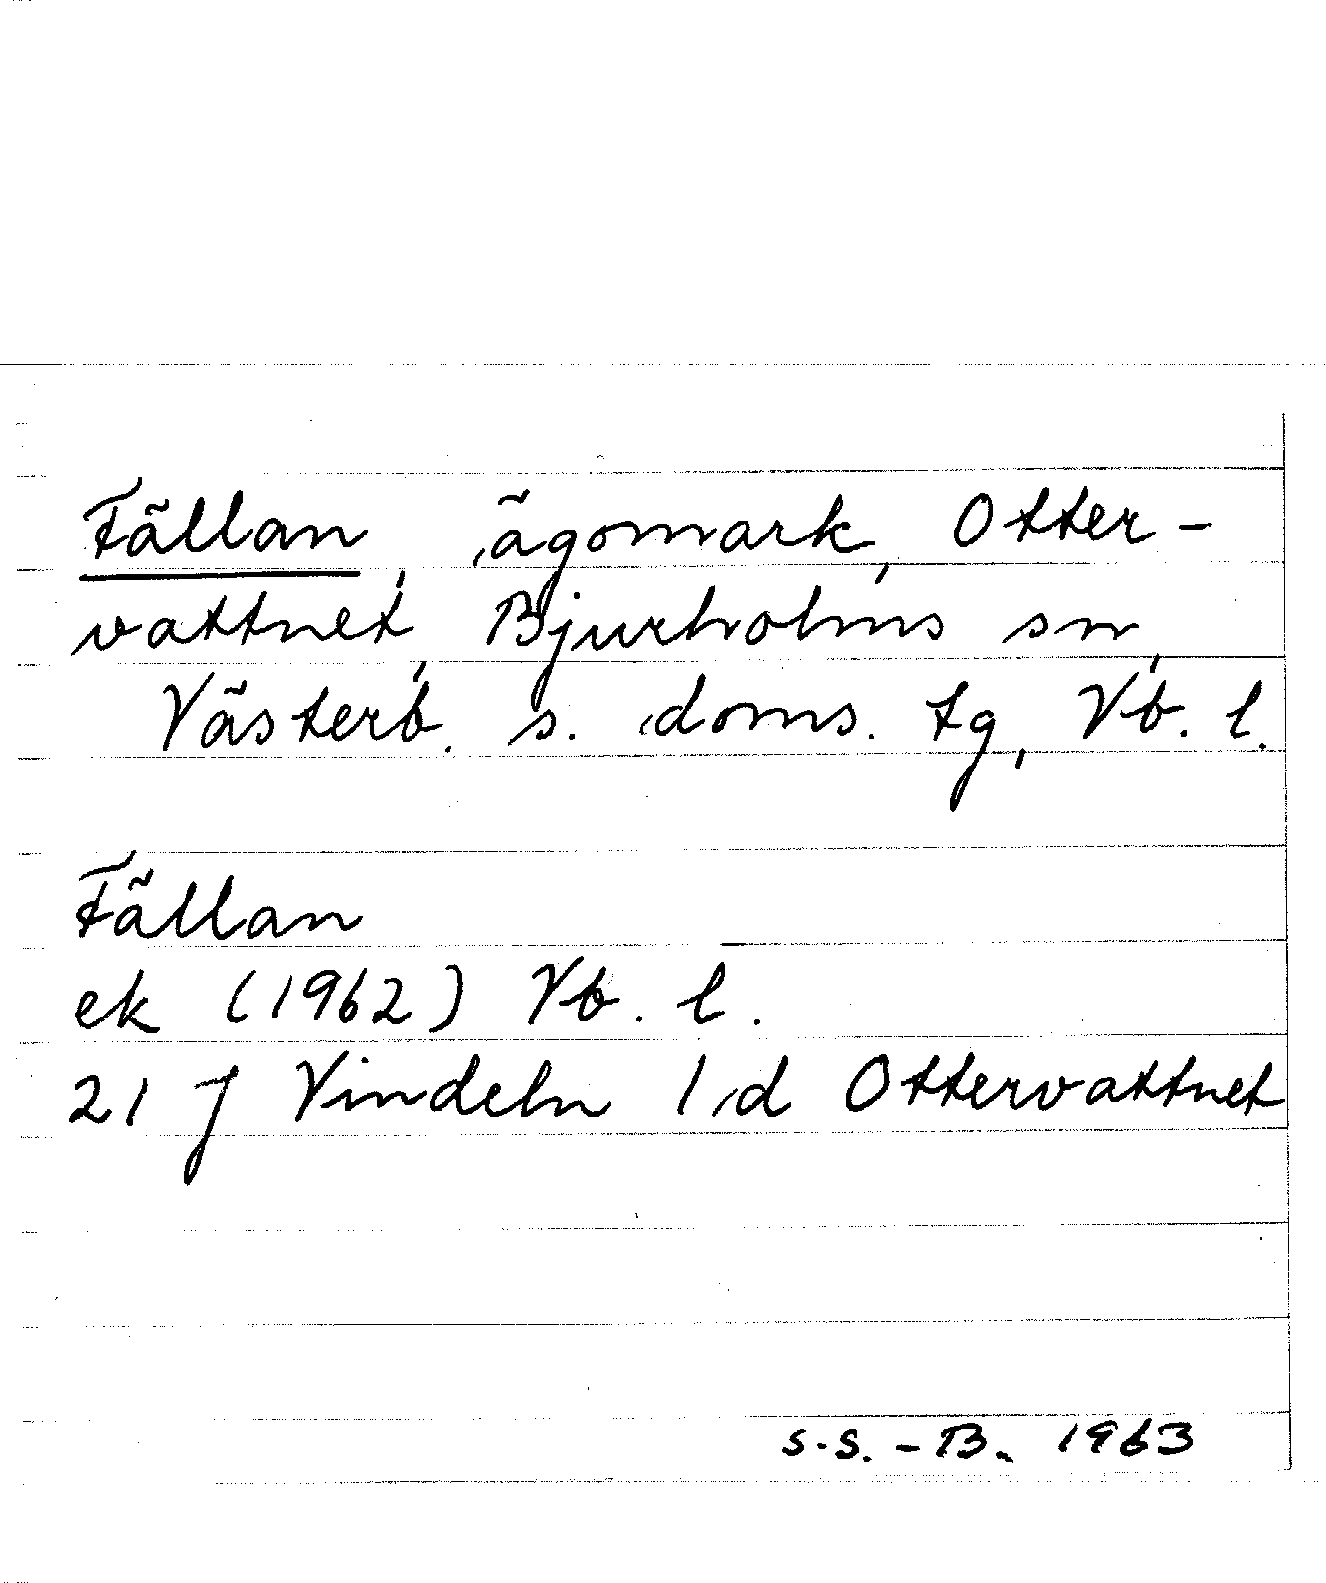 Fällan, ägomark, Otter-
vattnet, Bjurholms sn,
Västerb. s. doms. tg, Vb. l.
Fällan
ek (1962) Vb. l.
21 J Vindeln 1 d Ottervattnet
S.S.-B. 1963